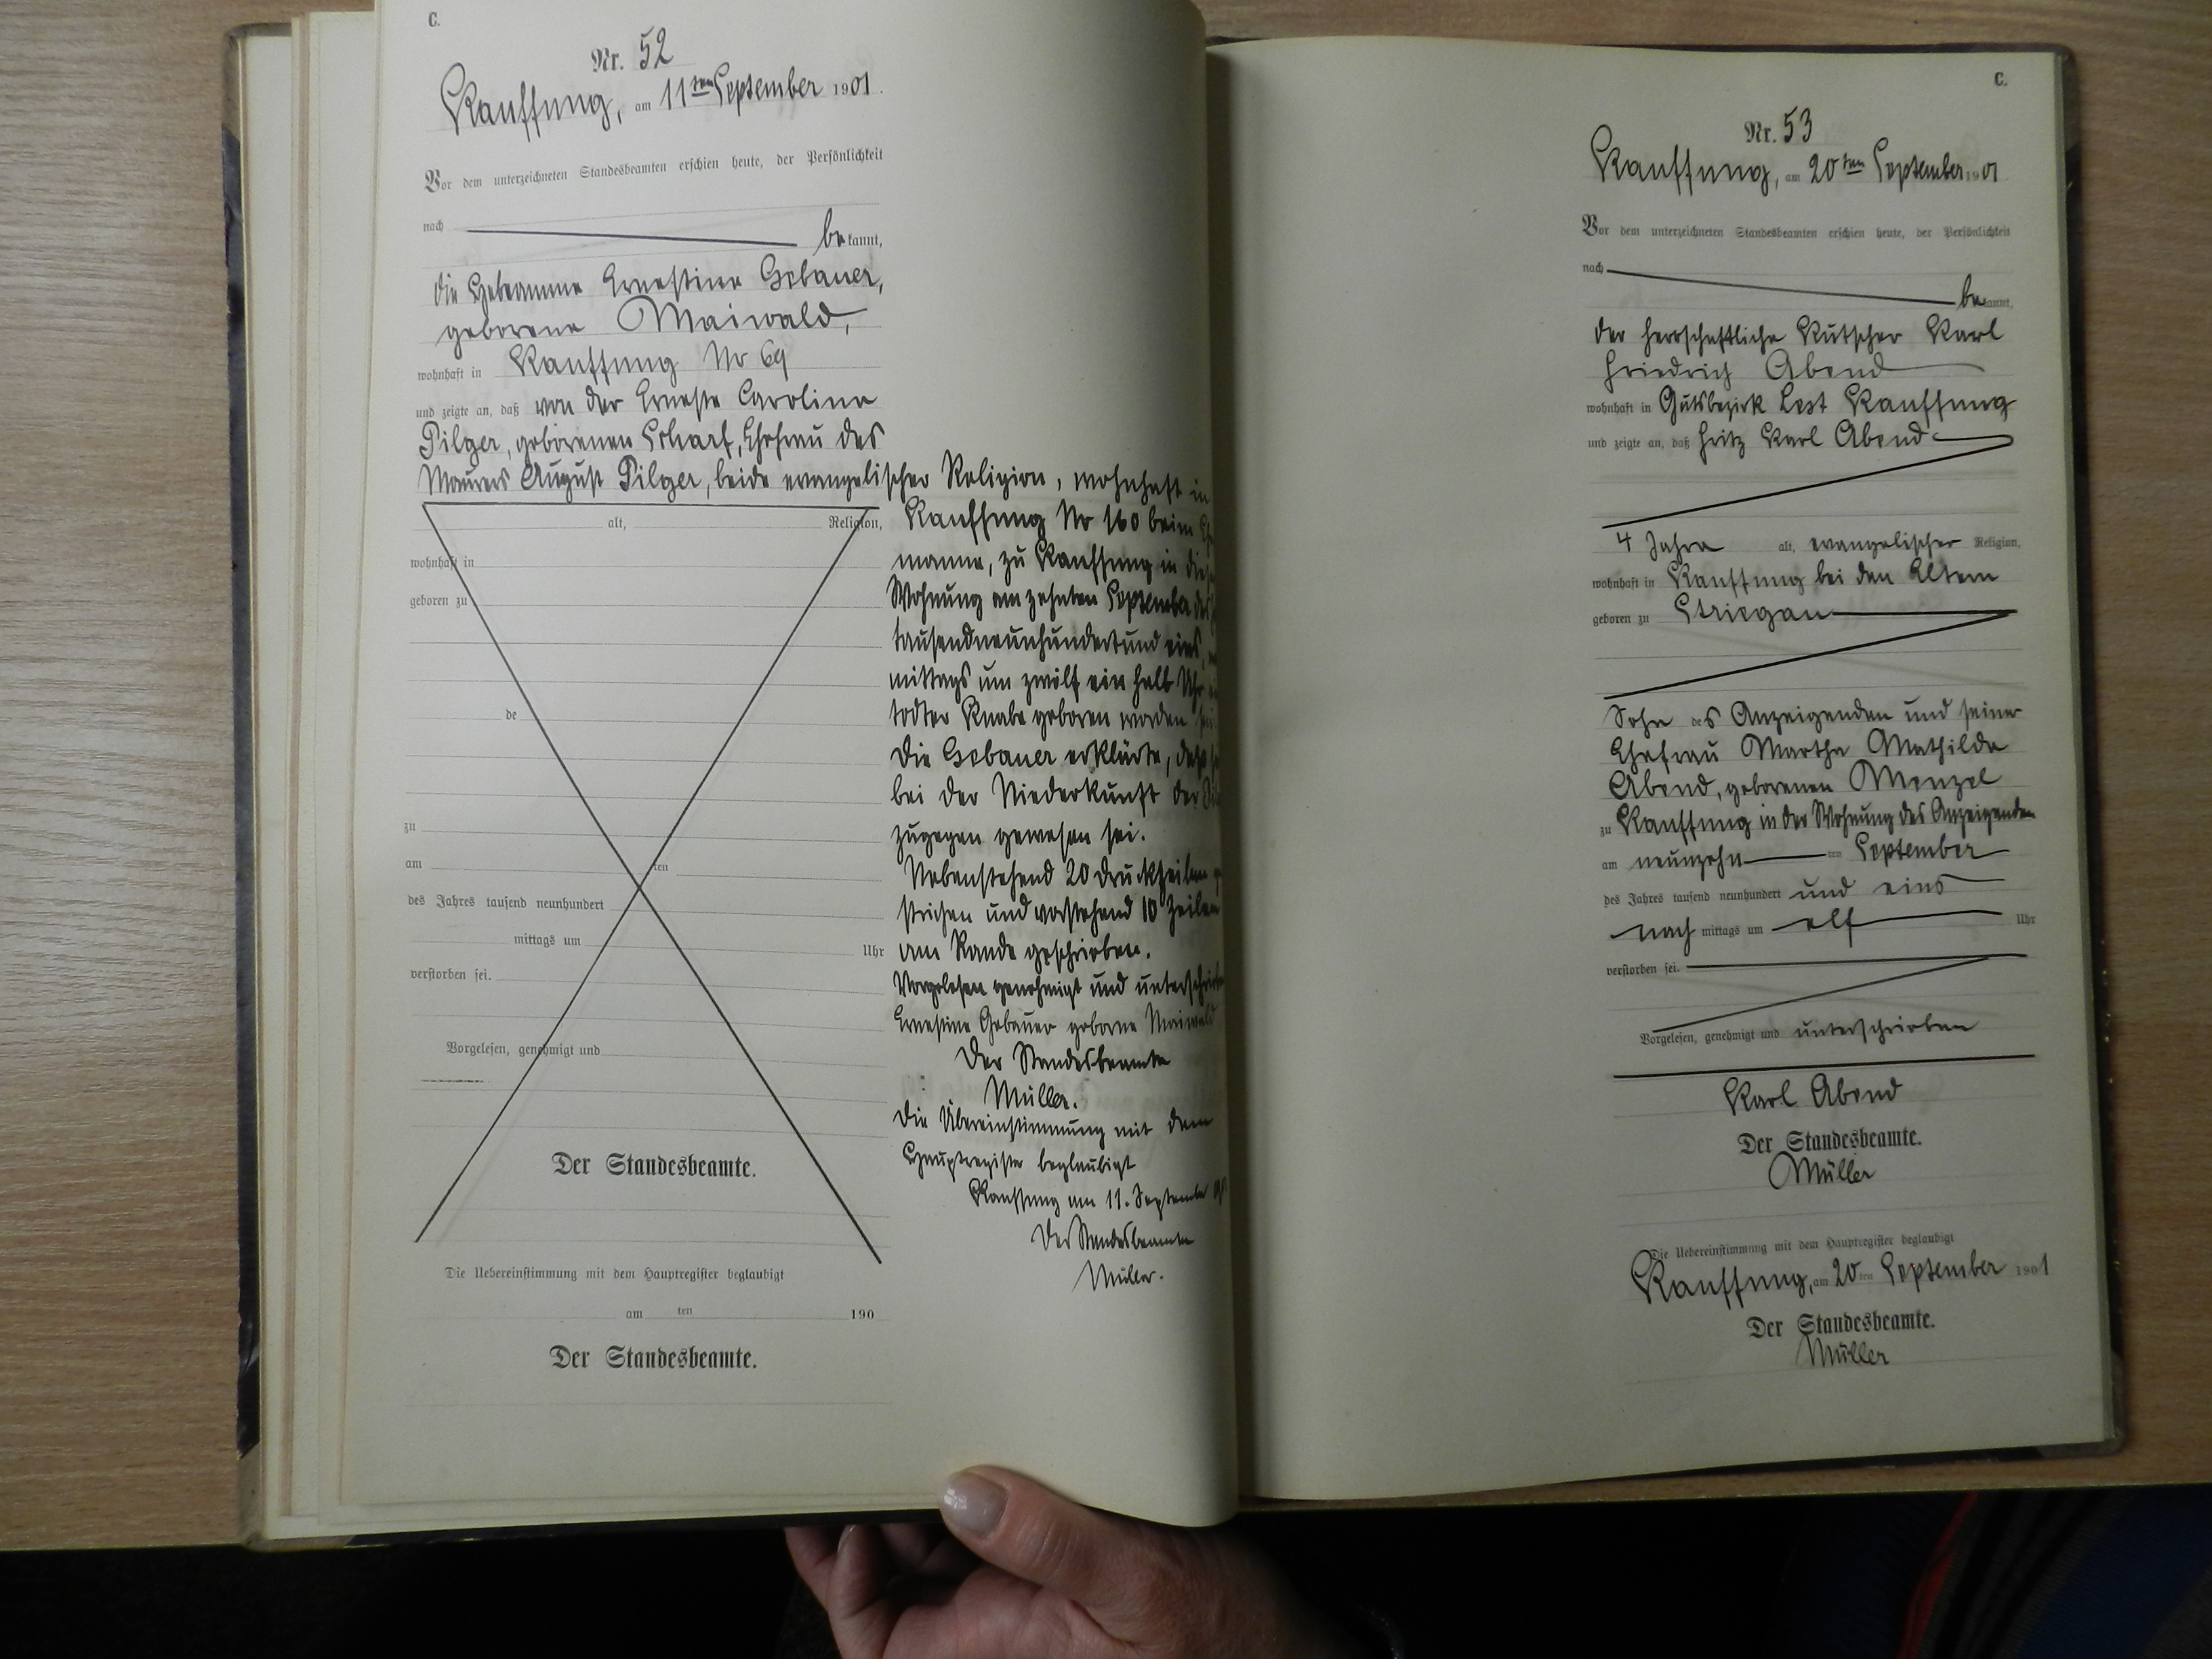 C.
Nr. 52
Kauffung, am 11ten September 1901.
Vor dem unterzeichneten Standesbeamten erschien heute, der Persönlichkeit
nach bekannt,
die Hebeamme Ernestine Gebauer,
geborene Maiwald,
wohnhaft in Kauffung No 69
und zeigte an, daß von der Erneste Caroline
Pilger, geborenen Scharf, Ehefrau des
Maurers August Pilger, beide evangelischer Religion, wohnhaft in
Kauffung No 160 beim
manne, zu Kauffung in
Wohnung am zehnten September
tausendneunhundertund eins,
mittags um zwölf ein halb Uhr
todter Knabe geboren worden
Die Gebauer erklärte, daß
bei der Niederkunft der
zugegen gewesen sei.
Nebenstehend 20 Druckzeilen
strichen und vorstehend 10 Zeilen
am Rande geschrieben.
Vorgelesen genehmigt und unterschrieben
Ernestine Gebauer geborne Maiwald
Der Standesbeamte
Müller.
Die Übereinstimmung mit dem
Hauptregister beglaubigt
Kauffung am 11. September
Der Standesbeamte
Müller.
alt, Religion,
wohnhaft in
geboren zu
de
zu
am ten
des Jahres tausend neunhundert
mittags um Uhr
verstorben sei.
Vorgelesen, genehmigt und
Der Standesbeamte.
Die Uebereinstimmung mit dem Hauptregister beglaubigt
am ten 190
Der Standesbeamte.
C.
Nr. 53
Kauffung, am 20ten September 1901
Vor dem unterzeichneten Standesbeamten erschien heute, der Persönlichkeit
nach bekannt,
der herrschaftliche Kutscher Karl
Friedrich Abend
wohnhaft in Gutsbezirk Lest Kauffung
und zeigte an, daß Fritz Karl Abend
4 Jahre alt, evangelischer Religion,
wohnhaft in Kauffung bei den Eltern
geboren zu Striegau
Sohn des Anzeigenden und seiner
Ehefrau Martha Mathilde
Abend, geborenen Menzel
zu Kauffung in der Wohnung des Anzeigenden
am neunzehn ten September
des Jahres tausend neunhundert und eins
nach mittags um elf Uhr
verstorben sei.
Vorgelesen, genehmigt und unterschrieben
Karl Abend
Der Standesbeamte.
Müller
Die Uebereinstimmung mit dem Hauptregister beglaubigt
Kauffung, am 20ten September 1901
Der Standesbeamte.
Müller